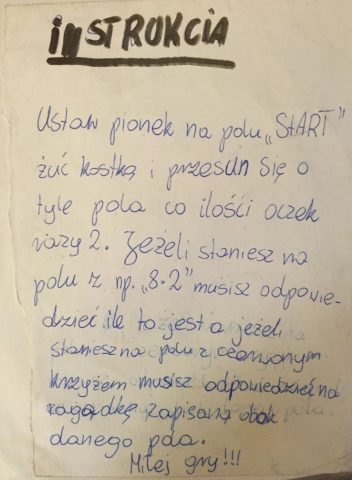 inSTRUKCIA
Ustaw pionek na polu „StART"
żuć kostką i przesuń się o
tyle pola co ilości oczek
razy 2. Jeżeli staniesz na
polu z np. „8·2" musisz odpowie-
dzieć ile to jest a jeżeli
staniesz na polu z czerwonym
krzyżem musisz odpowiedzieć na
zagadkę zapisaną obok
danego pola.
Miłej gry!!!